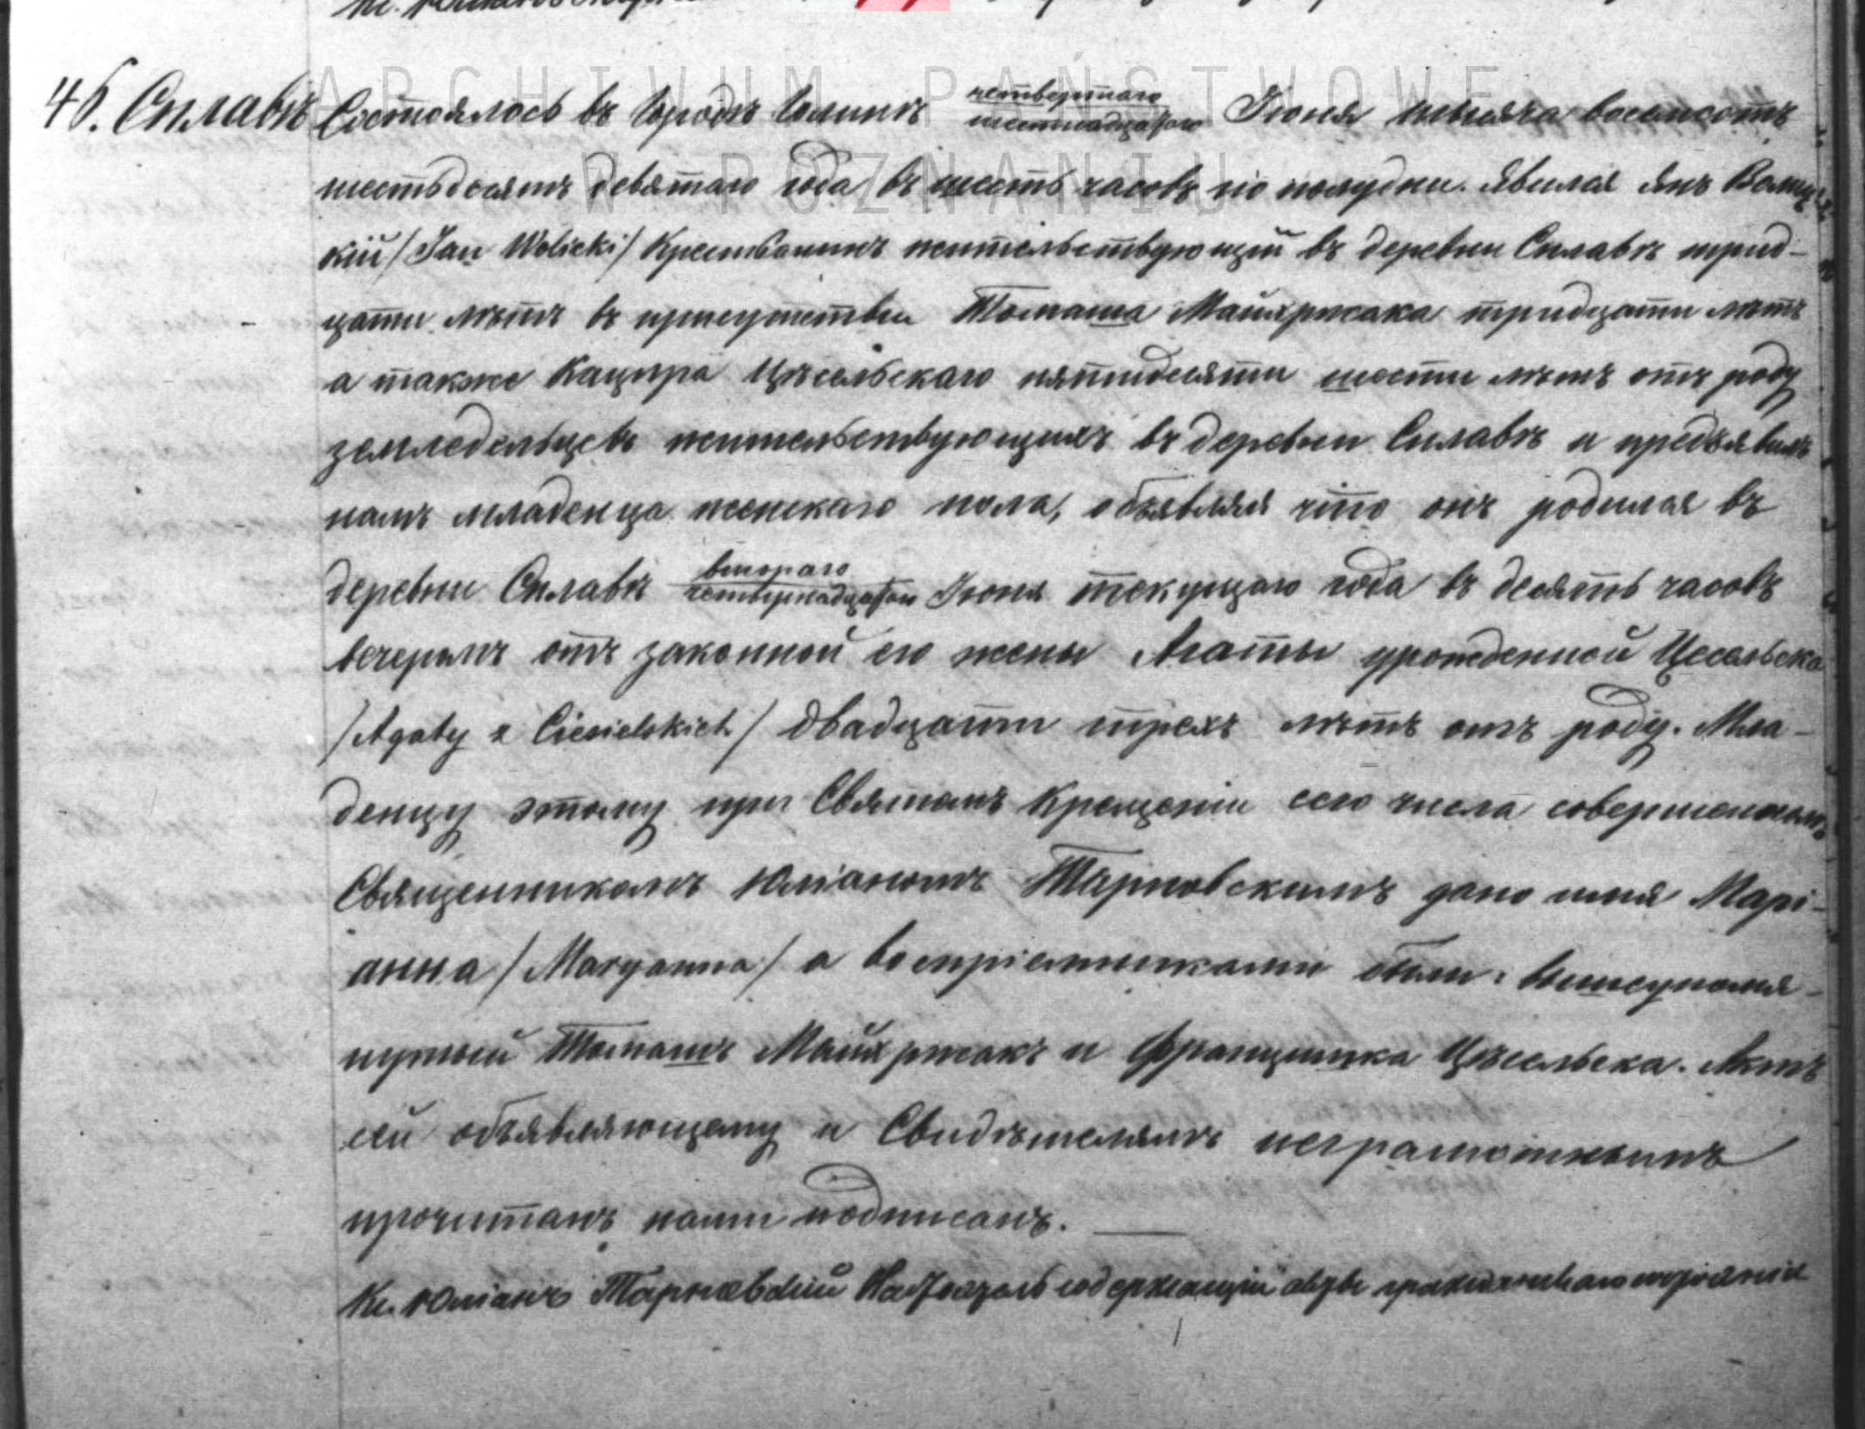 ARCHIWUM PAŃSTWOWE
W POZNANIU
46. Сплавѣ Состоялось въ городѣ Голинѣ четвертаго / шестнадцатаго Іюня тысяча восемсотъ
шестьдесятъ девятаго года въ шесть часовъ по полудни. Явился Янъ Волиц-
кій /Jan Wolicki/ Крестьянинъ жительствующій въ деревни Сплавѣ трид-
цати лѣтъ въ присутствіи Томаша Майхржака тридцати лѣтъ
а также Кацпра Цѣсельскаго пятидесяти шести лѣтъ отъ роду
земледельцевъ жительствующихъ въ деревни Сплавѣ и предъявилъ
намъ младенца женскаго пола, объявляя что онъ родился въ
деревни Сплавѣ втораго / четырнадцатаго Іюня текущаго года въ десять часовъ
вечеромъ отъ законной его жены Агаты урожденной Цесельска
/Agaty z Ciesielskich/ двадцати трехъ лѣтъ отъ роду. Мла-
денцу этому при Святомъ Крещеніи сего числа совершенномъ
Священникомъ Юліаномъ Тарновскимъ дано имя Марі-
анна /Maryanna/ а воспріемниками были: вышеупомя-
нутый Томашъ Майхржакъ и Францишка Цѣсельска. Актъ
сей объявляющему и Свидѣтелямъ неграмотнымъ
прочитанъ нами подписанъ.
Кс. Юліанъ Тарновскій Настоятель содержащій акты гражданскаго состоянія